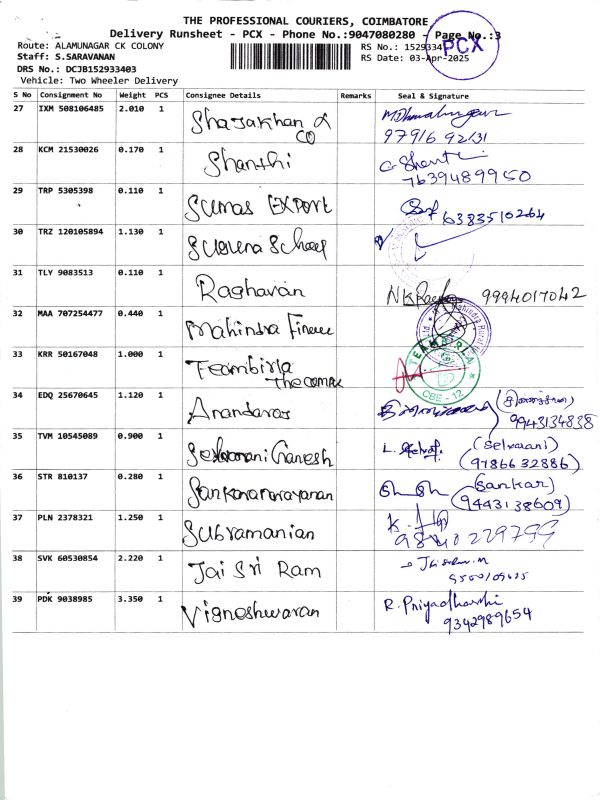 THE PROFESSIONAL COURIERS, COIMBATORE
Delivery Runsheet - PCX - Phone No.:9047080280 - Page No.:3
PCX
Route: ALAMUNAGAR CK COLONY
RS No.: 1529334
Staff: S.SARAVANAN
RS Date: 03-Apr-2025
DRS No.: DCJB152933403
Vehicle: Two Wheeler Delivery
S No Consignment No Weight PCS Consignee Details Remarks Seal & Signature
27 IXM 508106485 2.010 1 Shajakhan & CO
97916 92131
28 KCM 21530026 0.170 1 Shanthi
7639489950
29 TRP 5305398 0.110 1 Sumas Export
6383510264
30 TRZ 120105894 1.130 1
31 TLY 9083513 0.110 1 Raghavan 9994017042
32 MAA 707254477 0.440 1 Mahindra Finance
33 KRR 50167048 1.000 1 Teambirla
TEAM BIRLA
CBE - 12
34 EDQ 25670645 1.120 1 Anandaraj
9943134838
35 TVM 10545089 0.900 1 Selvarani Ganesh (Selvarani)
(9786632886)
36 STR 810137 0.280 1 Sankaranarayanan (Sankar)
(9443138609)
37 PLN 2378321 1.250 1 Subramanian
38 SVK 60530854 2.220 1 Jai Sri Ram
39 PDK 9038985 3.350 1 Vigneshwaran R. Priyadharshi
9342989654